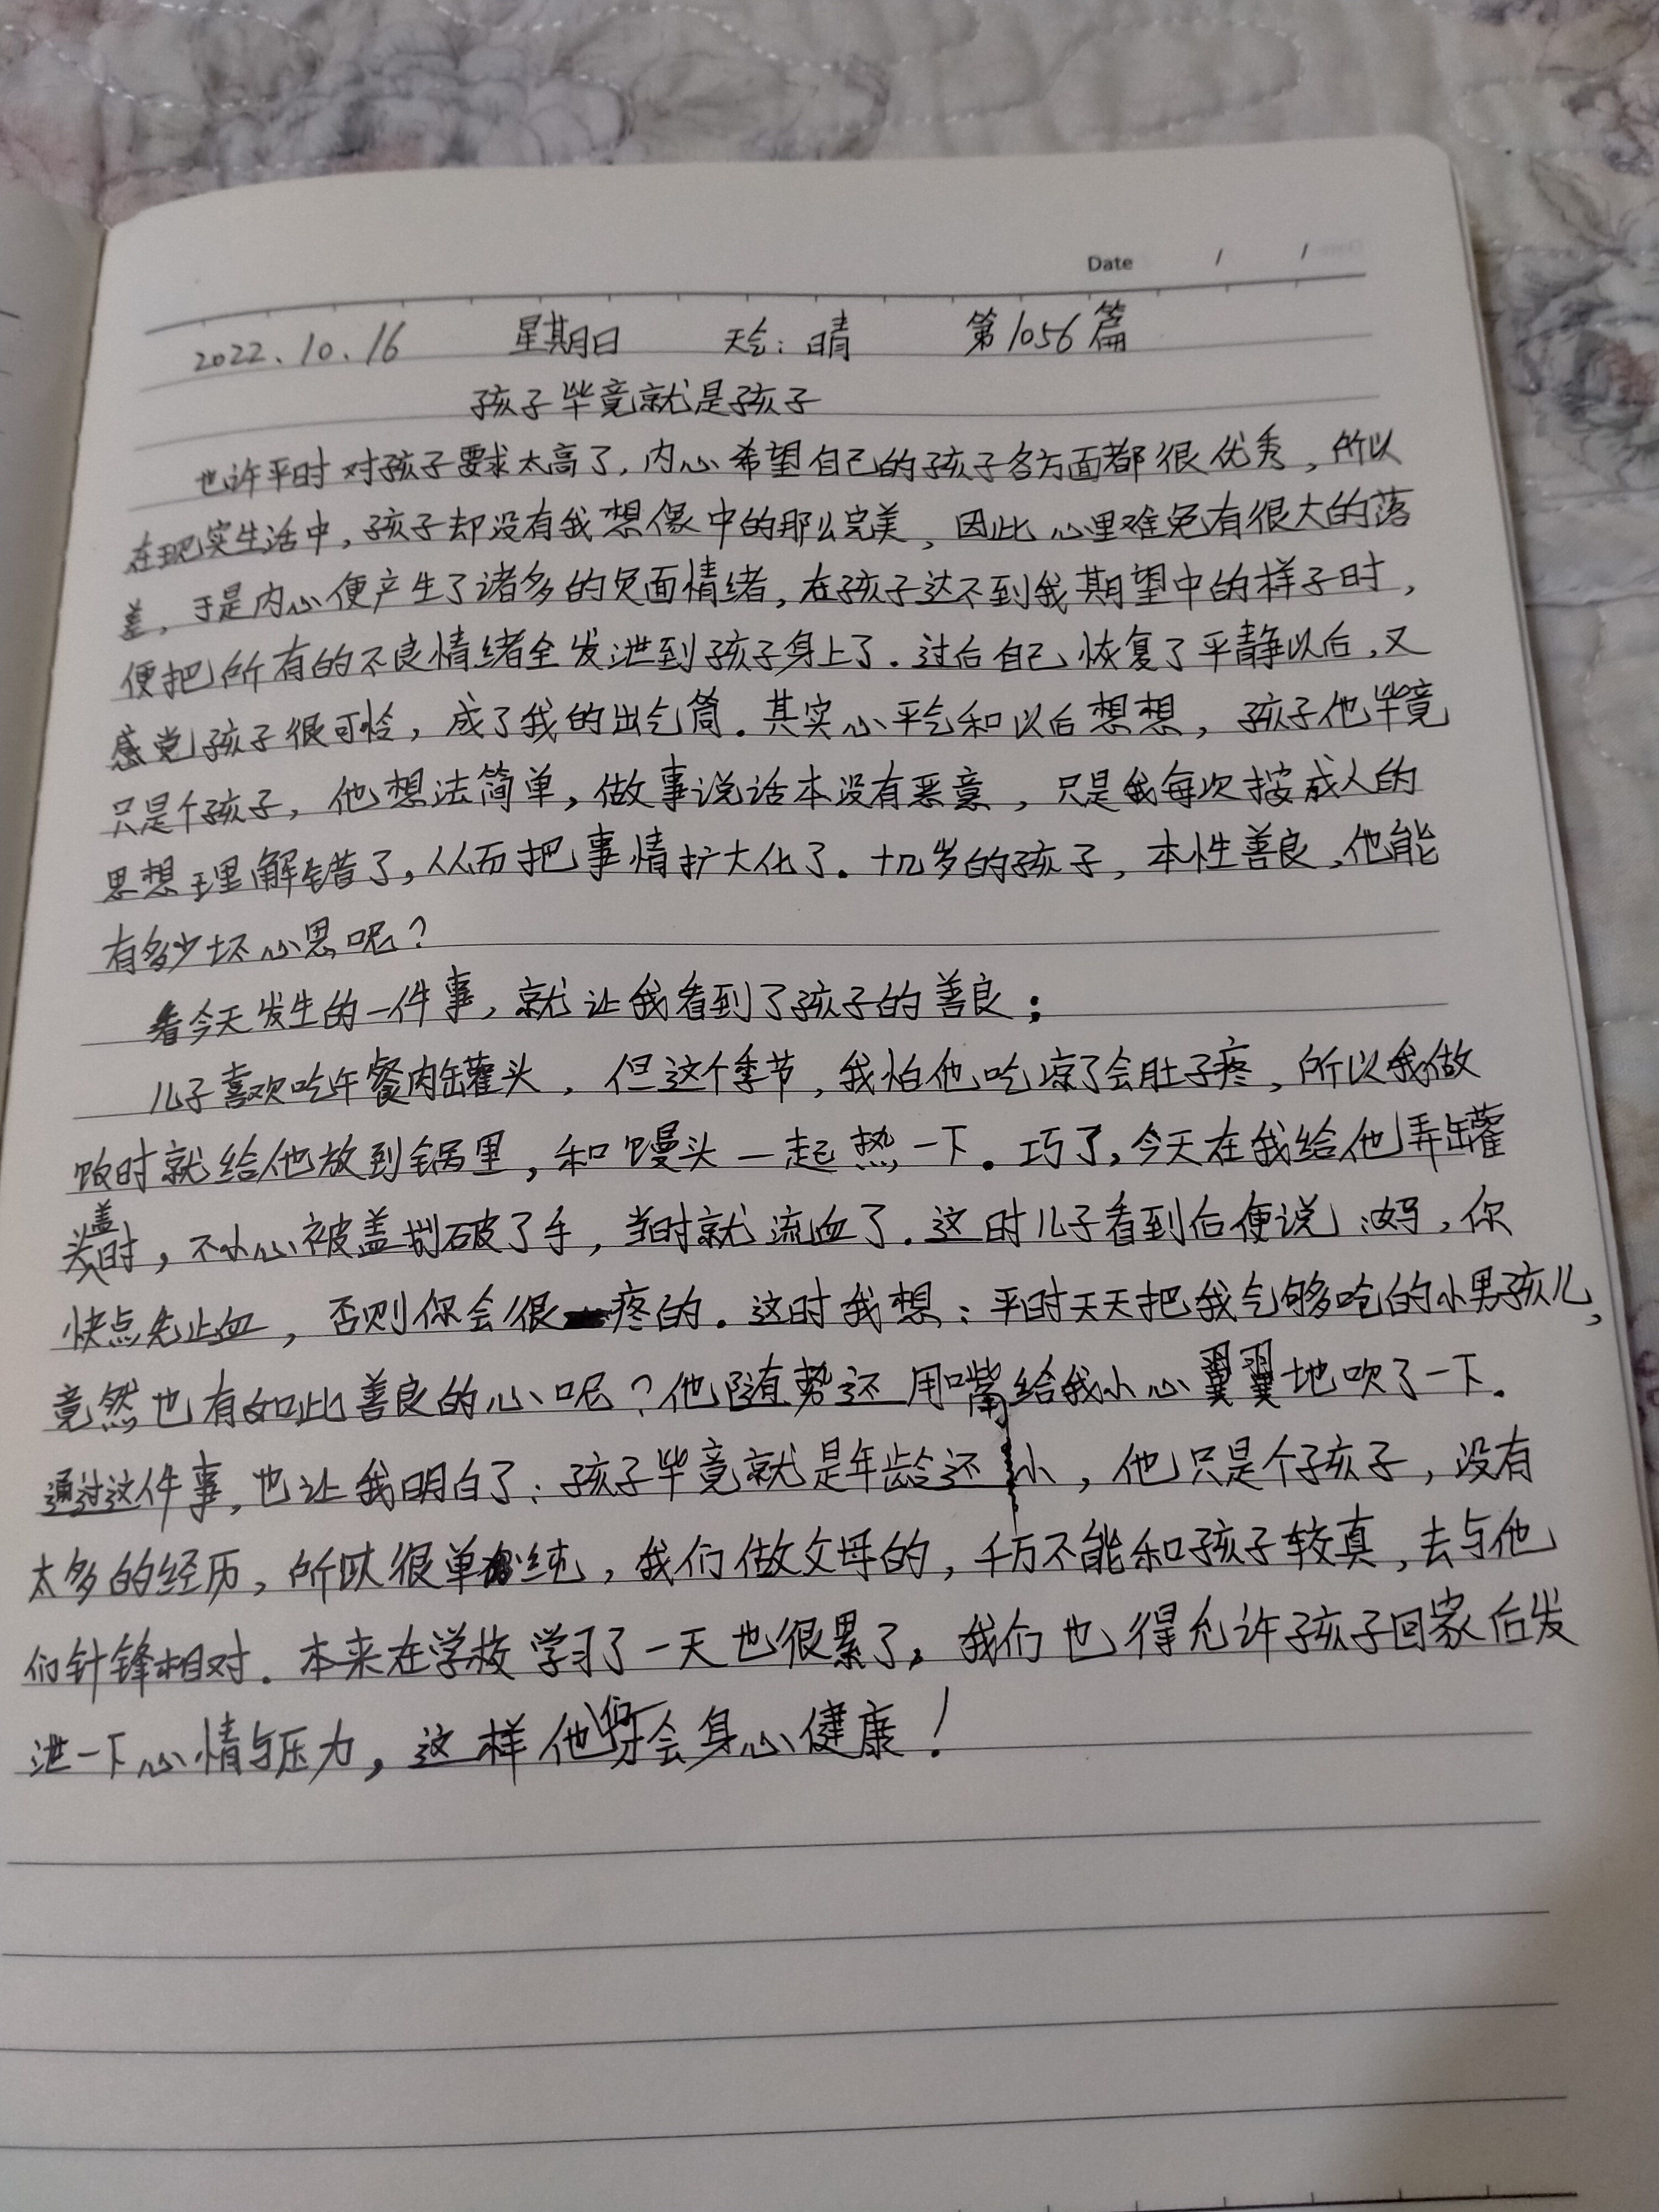 Date / /
2022.10.16 星期日 天气:晴 第1056篇
孩子毕竟就是孩子
也许平时对孩子要求太高了,内心希望自己的孩子各方面都很优秀,所以
在现实生活中,孩子却没有我想像中的那么完美,因此心里难免有很大的落
差,于是内心便产生了诸多的负面情绪,在孩子达不到我期望中的样子时,
便把所有的不良情绪全发泄到孩子身上了.过后自己恢复了平静以后,又
感觉孩子很可怜,成了我的出气筒.其实心平气和以后想想,孩子他毕竟
只是个孩子,他想法简单,做事说话本没有恶意,只是我每次按成人的
思想理解错了,从而把事情扩大化了.十几岁的孩子,本性善良,他能
有多少坏心思呢?
看今天发生的一件事,就让我看到了孩子的善良;
儿子喜欢吃午餐肉罐头,但这个季节,我怕他吃凉了会肚子疼,所以我做
饭时就给他放到锅里,和馒头一起热一下.巧了,今天在我给他弄罐
头盖时,不小心被盖划破了手,当时就流血了.这时儿子看到后便说:妈,你
快点先止血,否则你会很疼的.这时我想:平时天天把我气够呛的小男孩儿,
竟然也有如此善良的心呢?他随势还用嘴给我小心翼翼地吹了一下.
通过这件事,也让我明白了:孩子毕竟就是年龄还小,他只是个孩子,没有
太多的经历,所以很单纯,我们做父母的,千万不能和孩子较真,去与他
们针锋相对.本来在学校学习了一天也很累了,我们也得允许孩子回家后发
泄一下心情与压力,这样他们才会身心健康!